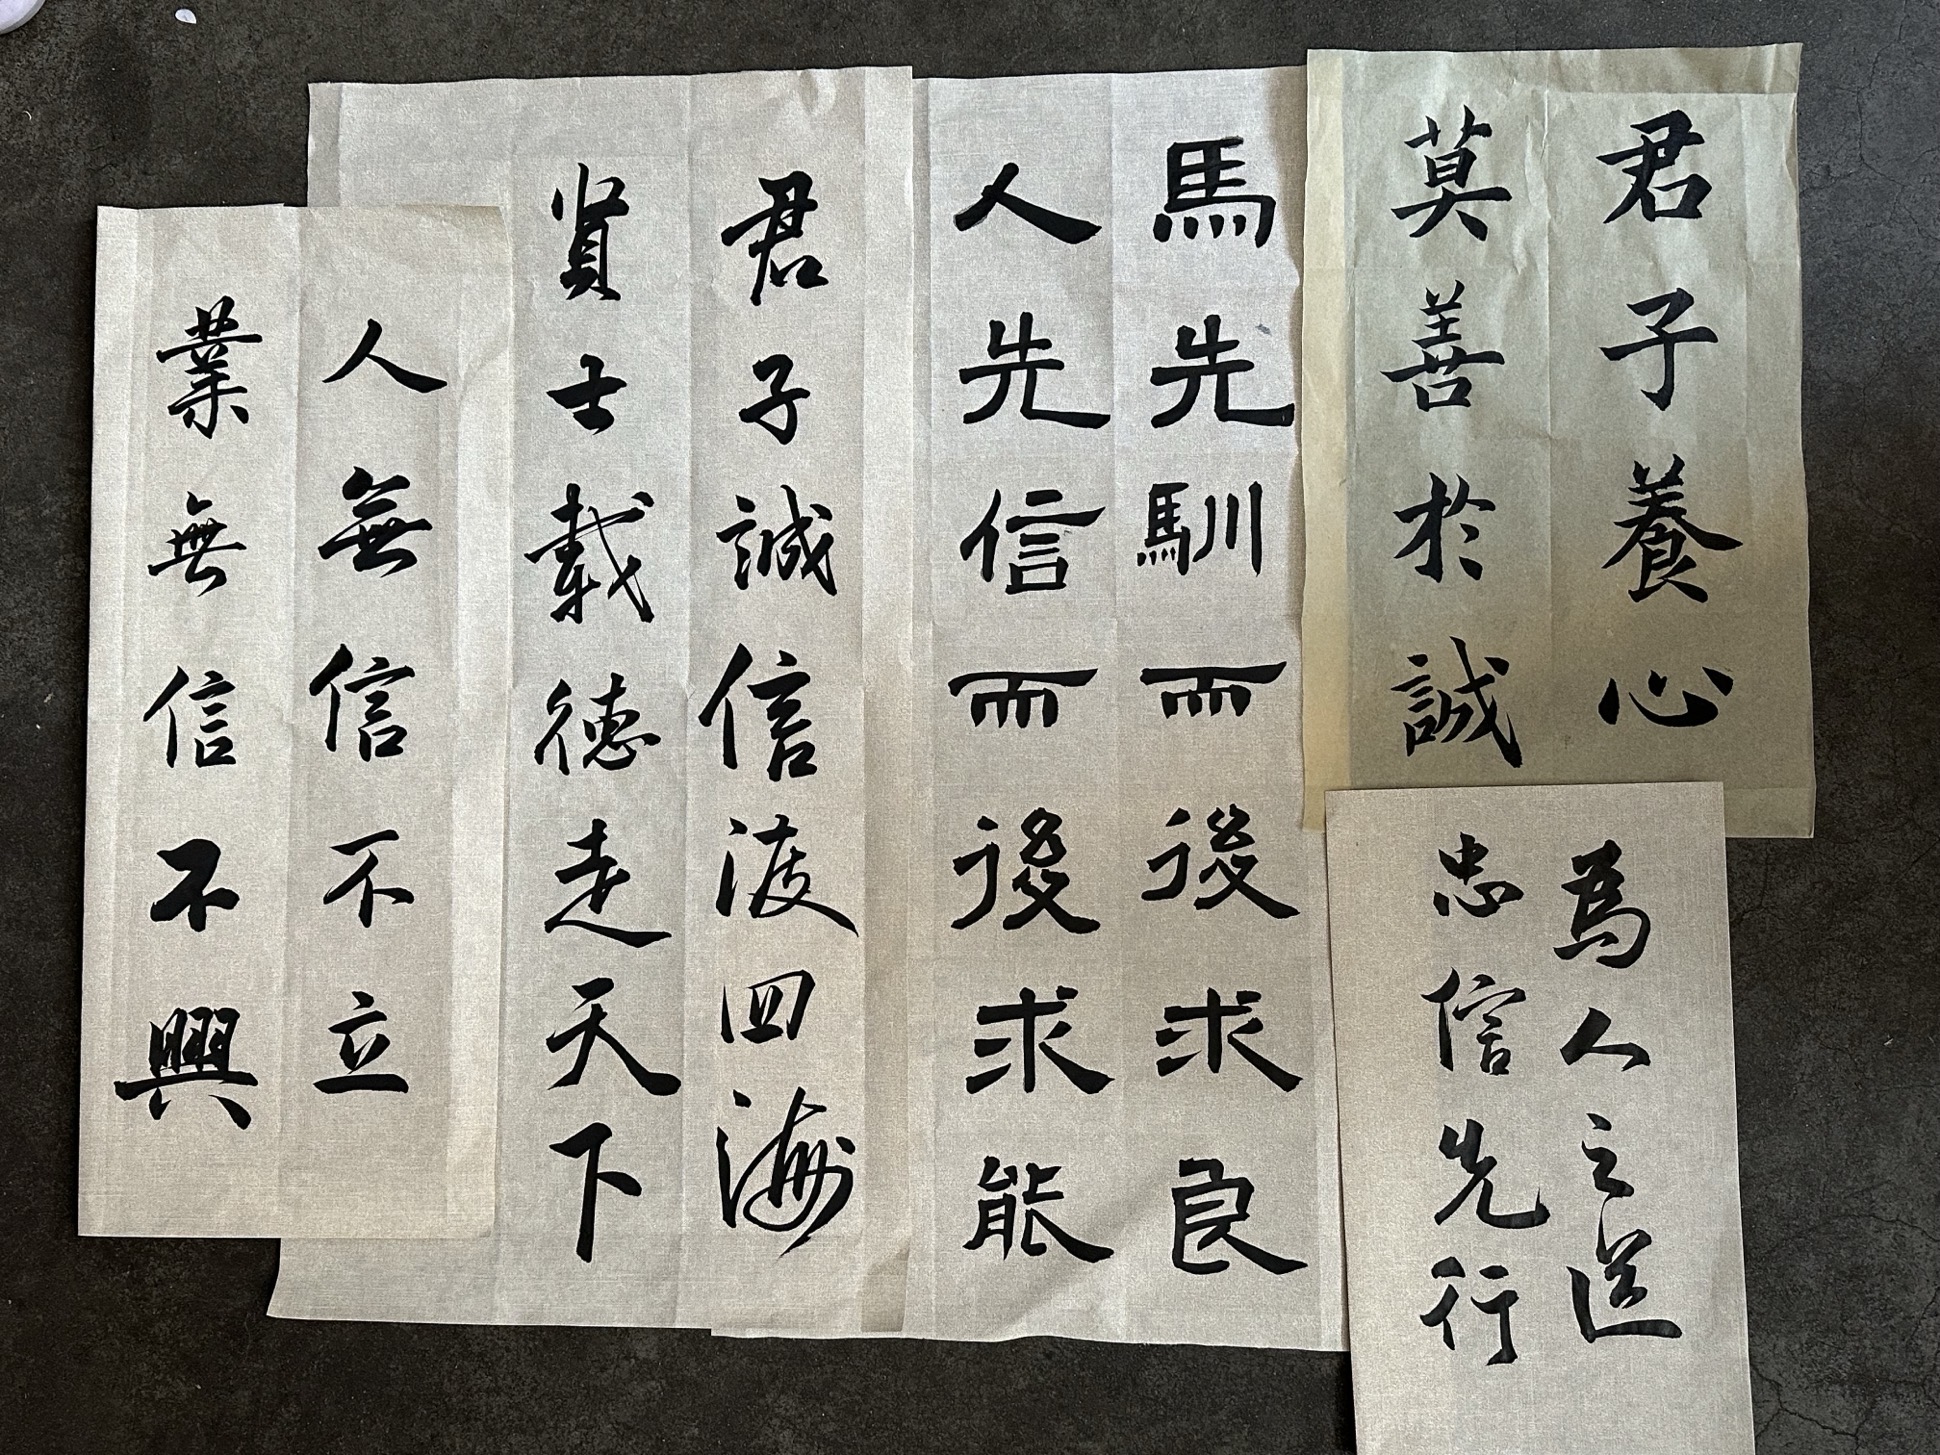 君子養心
莫善於誠
為人之道
忠信先行
馬先馴而後求良
人先信而後求能
君子誠信渡四海
賢士載德走天下
人無信不立
業無信不興